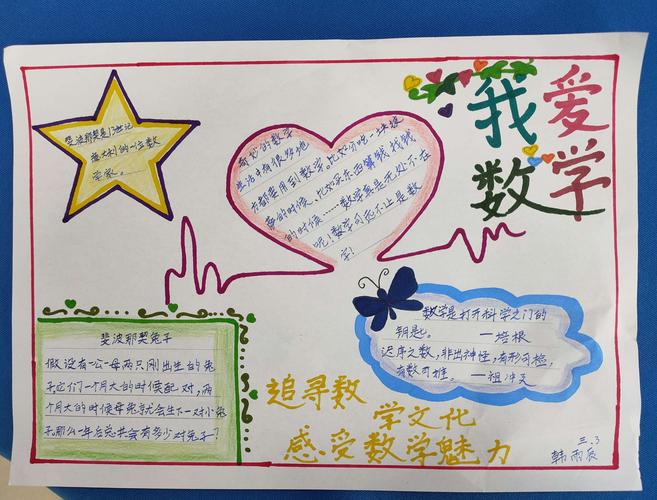 我爱
数学
斐波那契是13世纪
意大利的一位数
学家。
奇妙的数学
生活中有很多地
方都要用到数学。比如分吃一块蛋
糕的时候、比如买东西算钱找钱
的时候……数学真是无处不在
呢！数学可无不让是数
学！
斐波那契兔子
假设有一公一母两只刚出生的兔
子,它们一个月大的时候配对,两
个月大的时候母兔就会生下一对小兔
子,那么一年后总共会有多少对兔子？
数学是打开科学之门的
钥匙。 —培根
迟序之数,非出神怪,有形可检,
有数可推。 —祖冲天
追寻数 学文化
感受数学魅力
三.3
韩雨辰